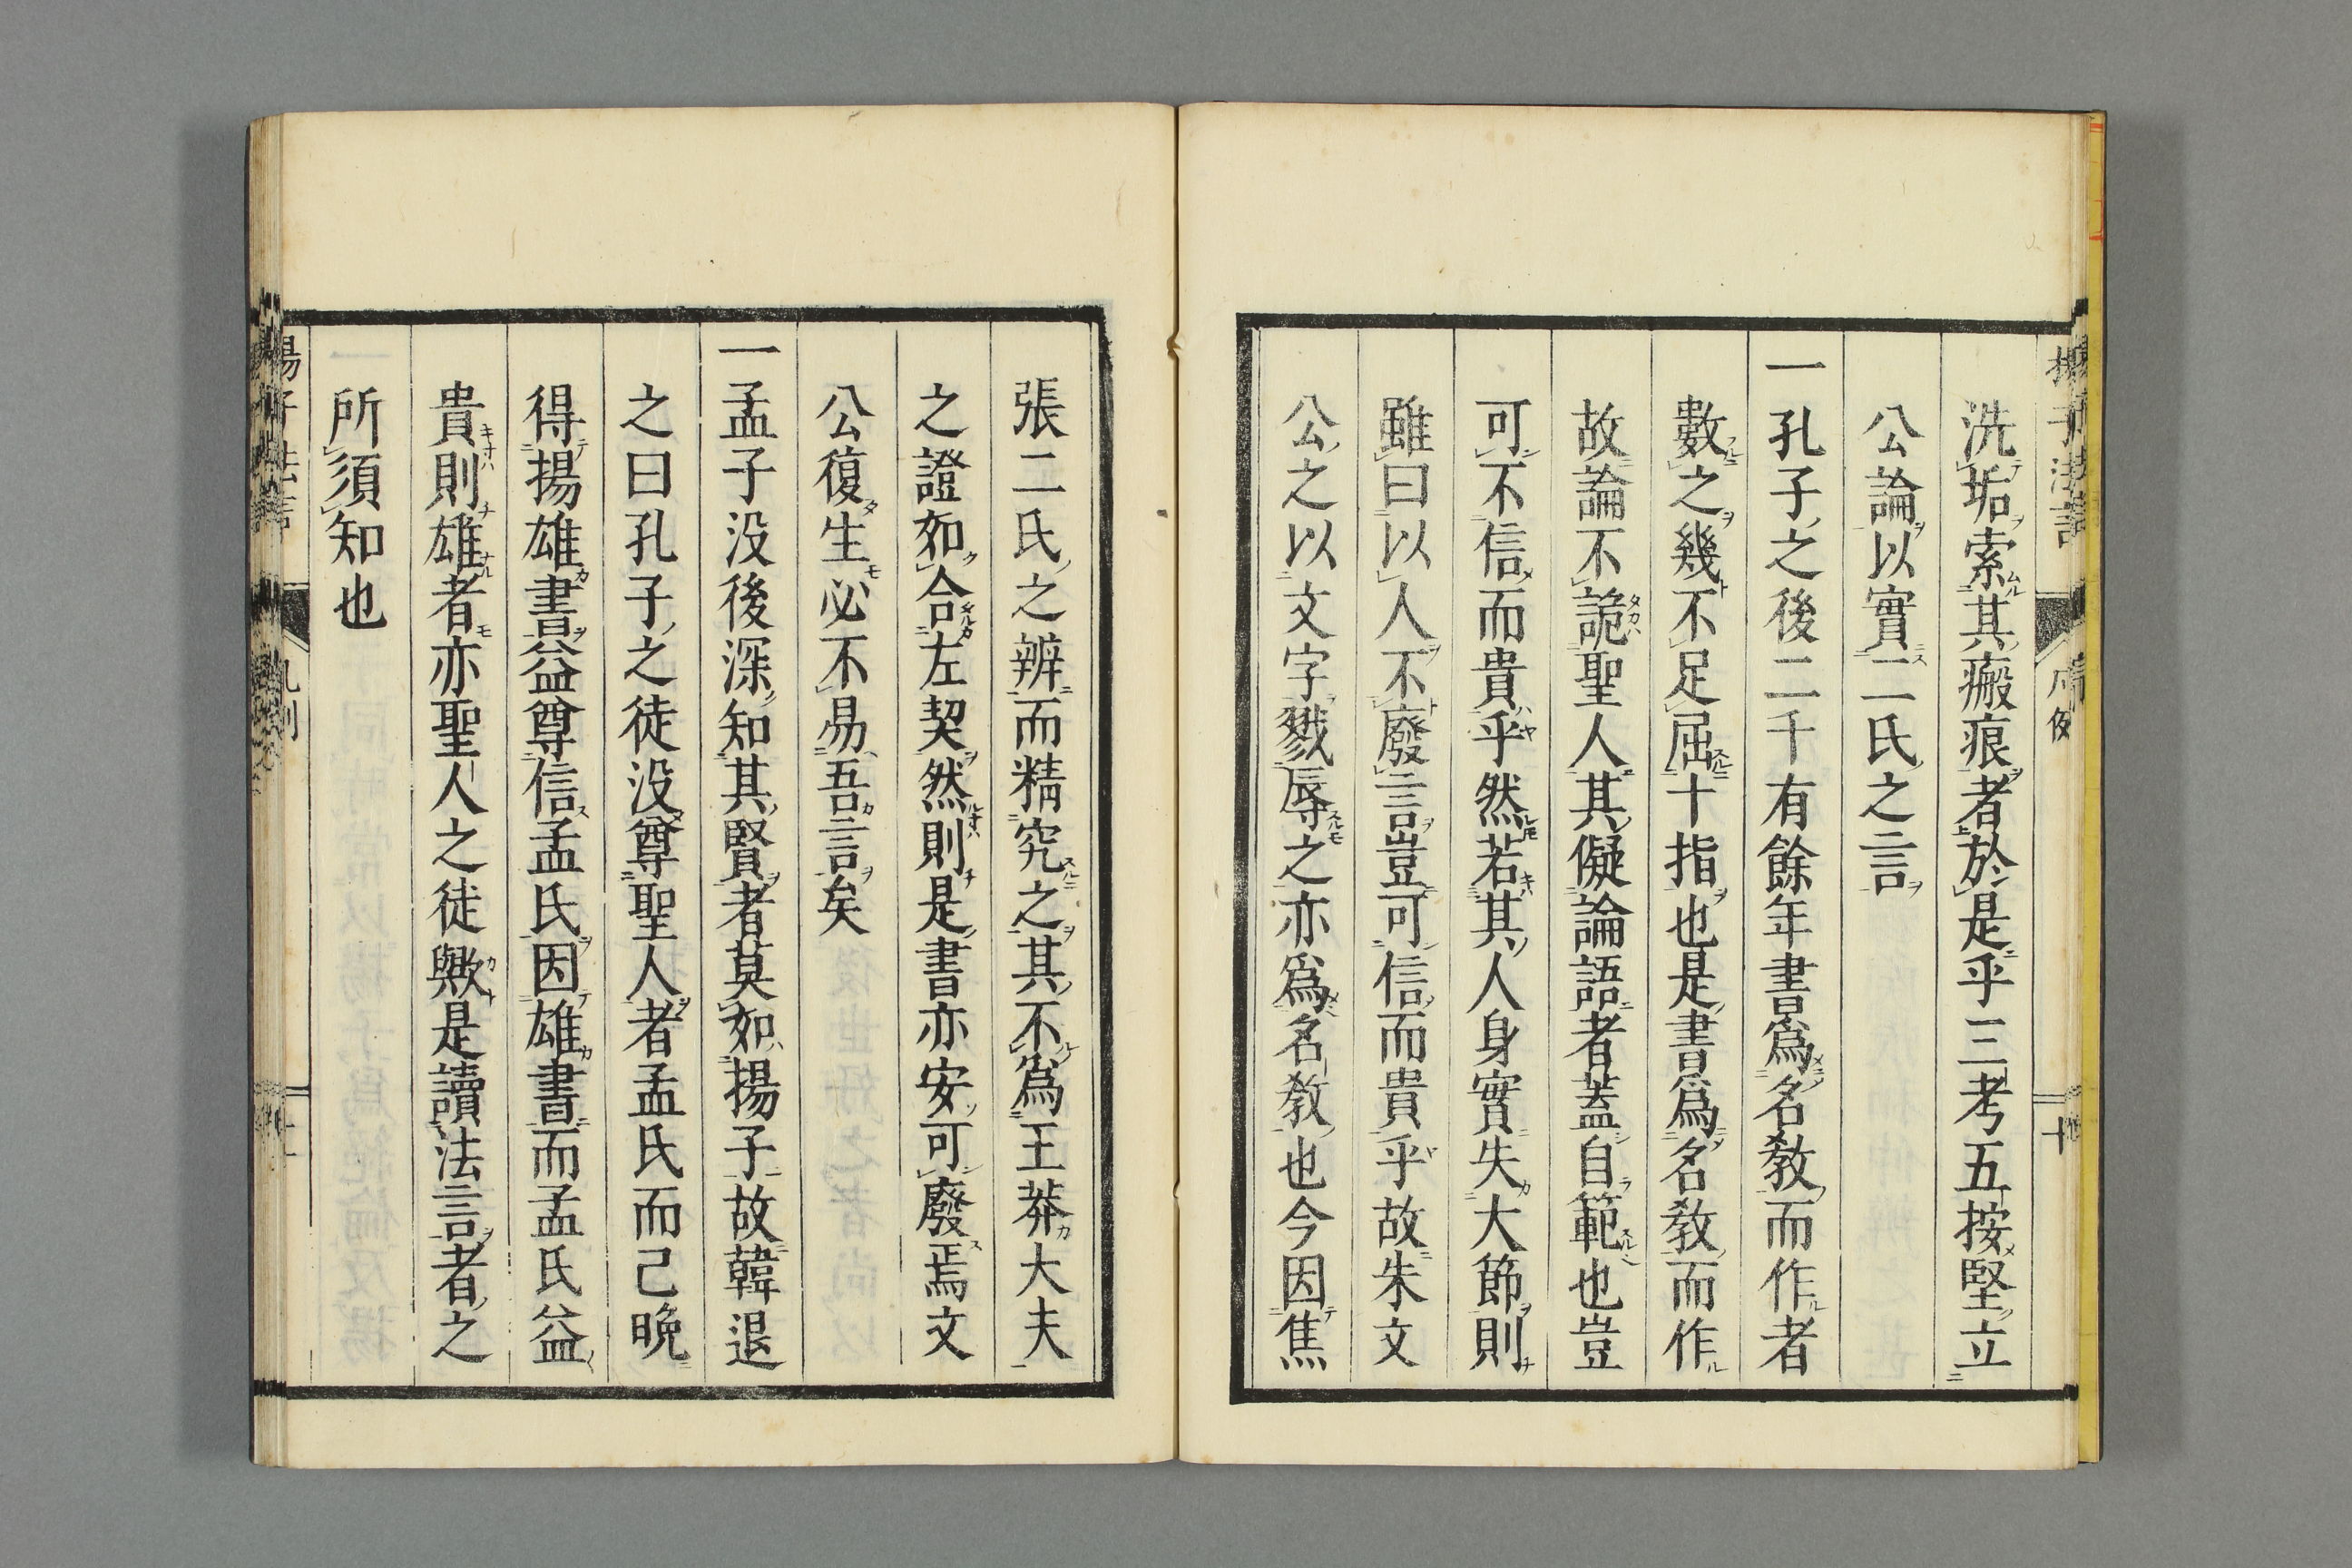 洗垢索其瘢痕者於是乎三考五按堅立
公論以實二氏之言
一孔子之後二千有餘年書爲名教而作者
數之幾不足屈十指也是書爲名教而作
故論不詭聖人其儗論語者蓋自範也豈
可不信而貴乎然若其人身實失大節則
雖曰以人不廢言豈可信而貴乎故朱文
公之以文字戮辱之亦爲名教也今因焦
張二氏之辨而精究之其不爲王莽大夫
之證如合左契然則是書亦安可廢焉文
公復生必不易吾言矣
一孟子没後深知其賢者莫如揚子故韓退
之曰孔子之徒没尊聖人者孟氏而已晚
得揚雄書益尊信孟氏因雄書而孟氏益
貴則雄者亦聖人之徒歟是讀法言者之
所須知也